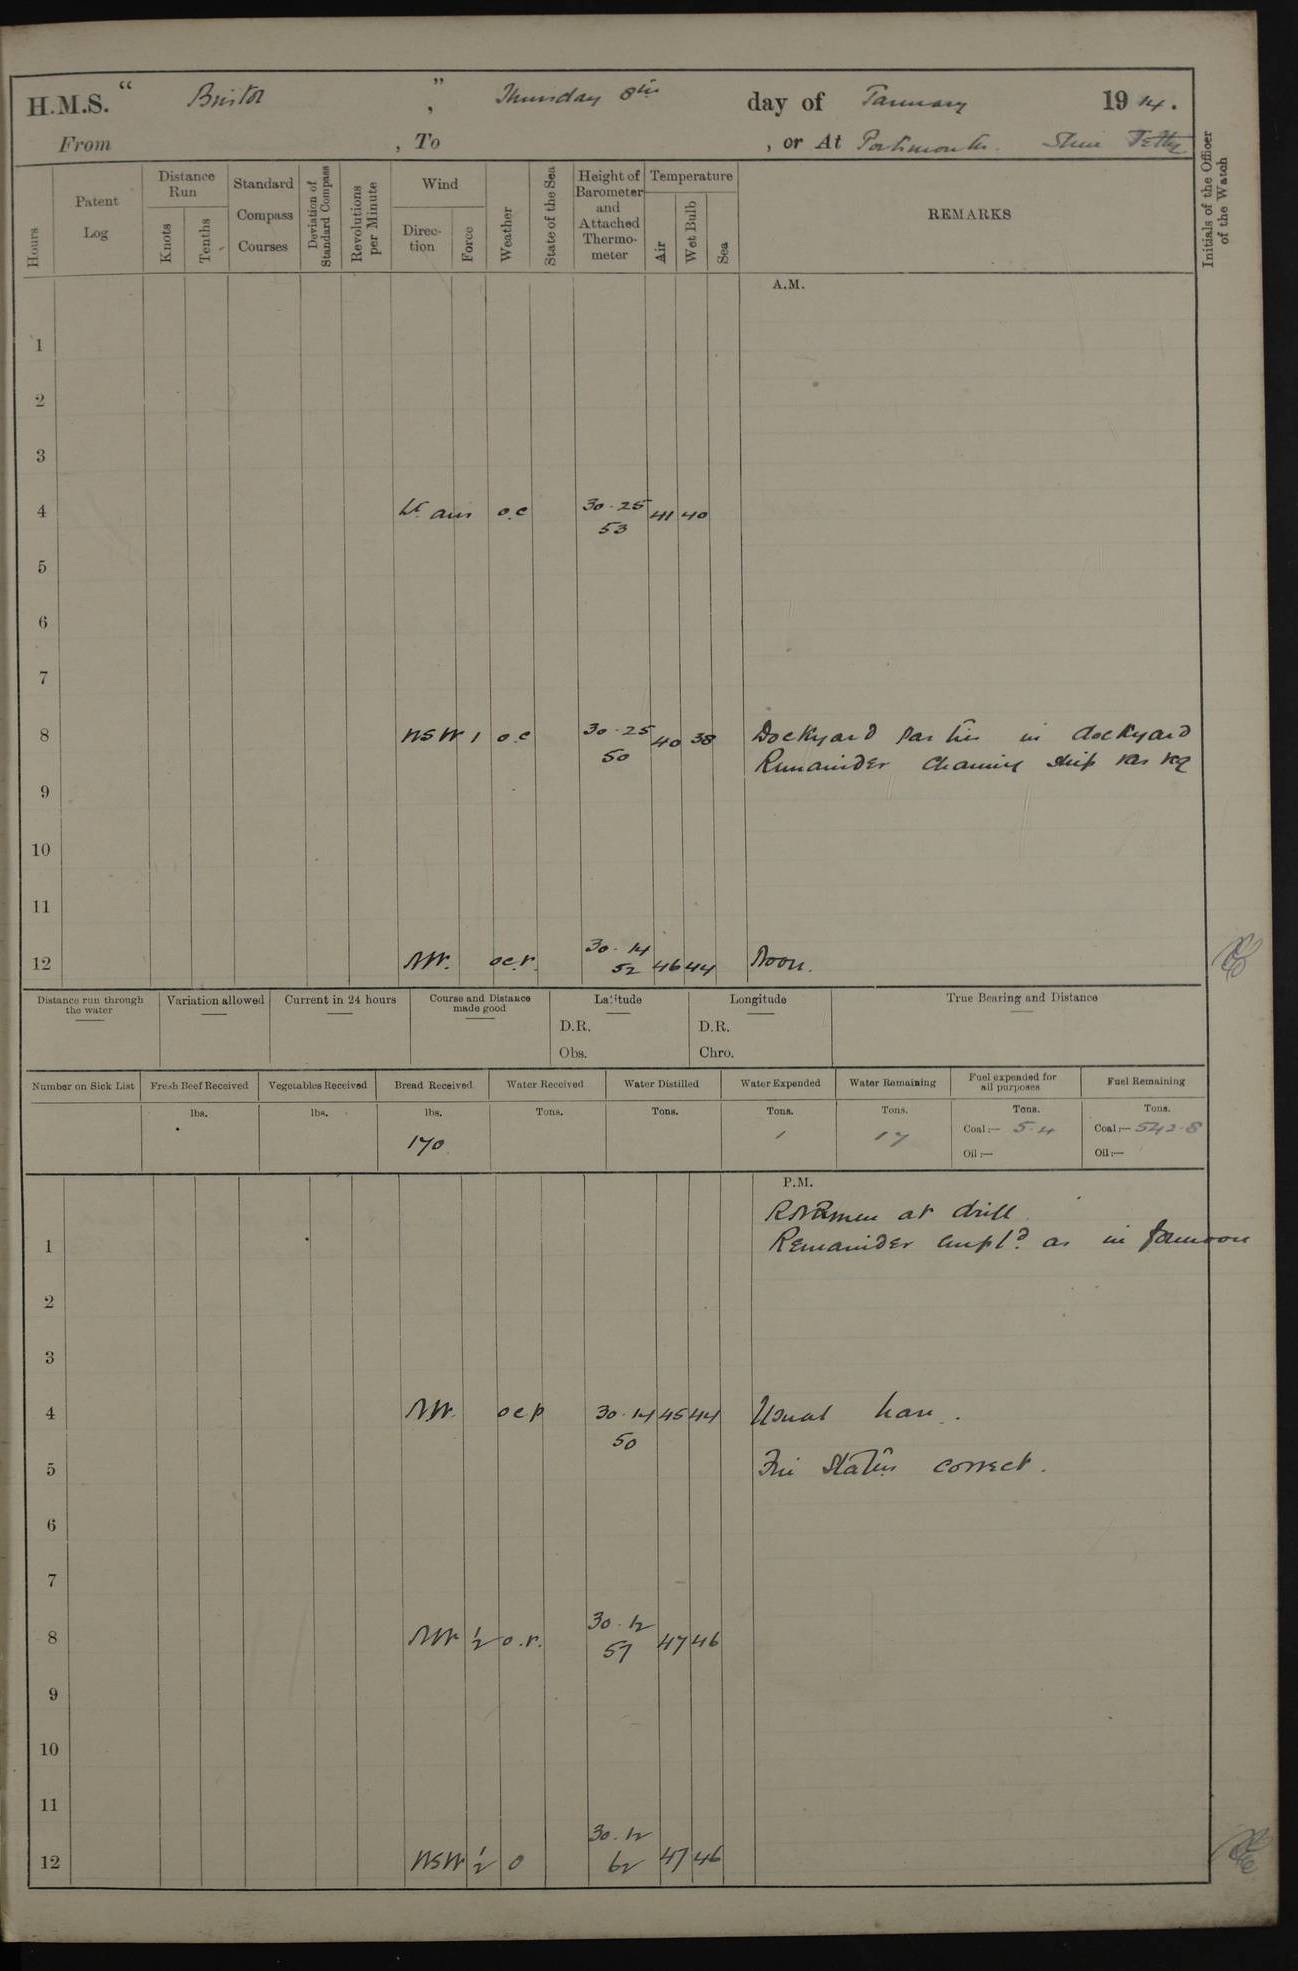 H.M.S. “ Bristol ”, Thursday 8th day of January 1914.
From , To , or At Portsmouth.
Hours
Patent Log
Distance Run
Knots
Tenths
Standard Compass Courses
Deviation of Standard Compass
Revolutions per Minute
Wind
Direction
Force
Weather
State of the Sea
Height of Barometer and Attached Thermometer
Temperature
Air
Wet Bulb
Sea
REMARKS
Initials of the Officer of the Watch
A.M.
1
2
3
4 Lt airs o.c 30.25 53 41 40
5
6
7
8 WSW 1 o.c 30.25 50 40 38 Dockyard parties in dockyard
Remainder cleaning ship
9
10
11
12 NW. oc.r. 30.14 52 46 44 Noon.
Distance run through the water
Variation allowed
Current in 24 hours
Course and Distance made good
Latitude
D.R.
Obs.
Longitude
D.R.
Chro.
True Bearing and Distance
Number on Sick List
Fresh Beef Received
Vegetables Received
Bread Received
Water Received
Water Distilled
Water Expended
Water Remaining
Fuel expended for all purposes
Fuel Remaining
lbs. lbs. lbs. Tons. Tons. Tons. Tons. Tons. Tons.
170 1 17 Coal:— 5.4 Coal:— 542.8
Oil:— Oil:—
P.M.
RNR men at drill.
1 Remainder empld. as in forenoon
2
3
4 NW. ocp 30.14 50 45 44 Usual leave.
5 Fire Statns correct.
6
7
8 NW ½ o.r. 30.12 59 47 46
9
10
11
12 WSW ½ o 30.12 62 47 46